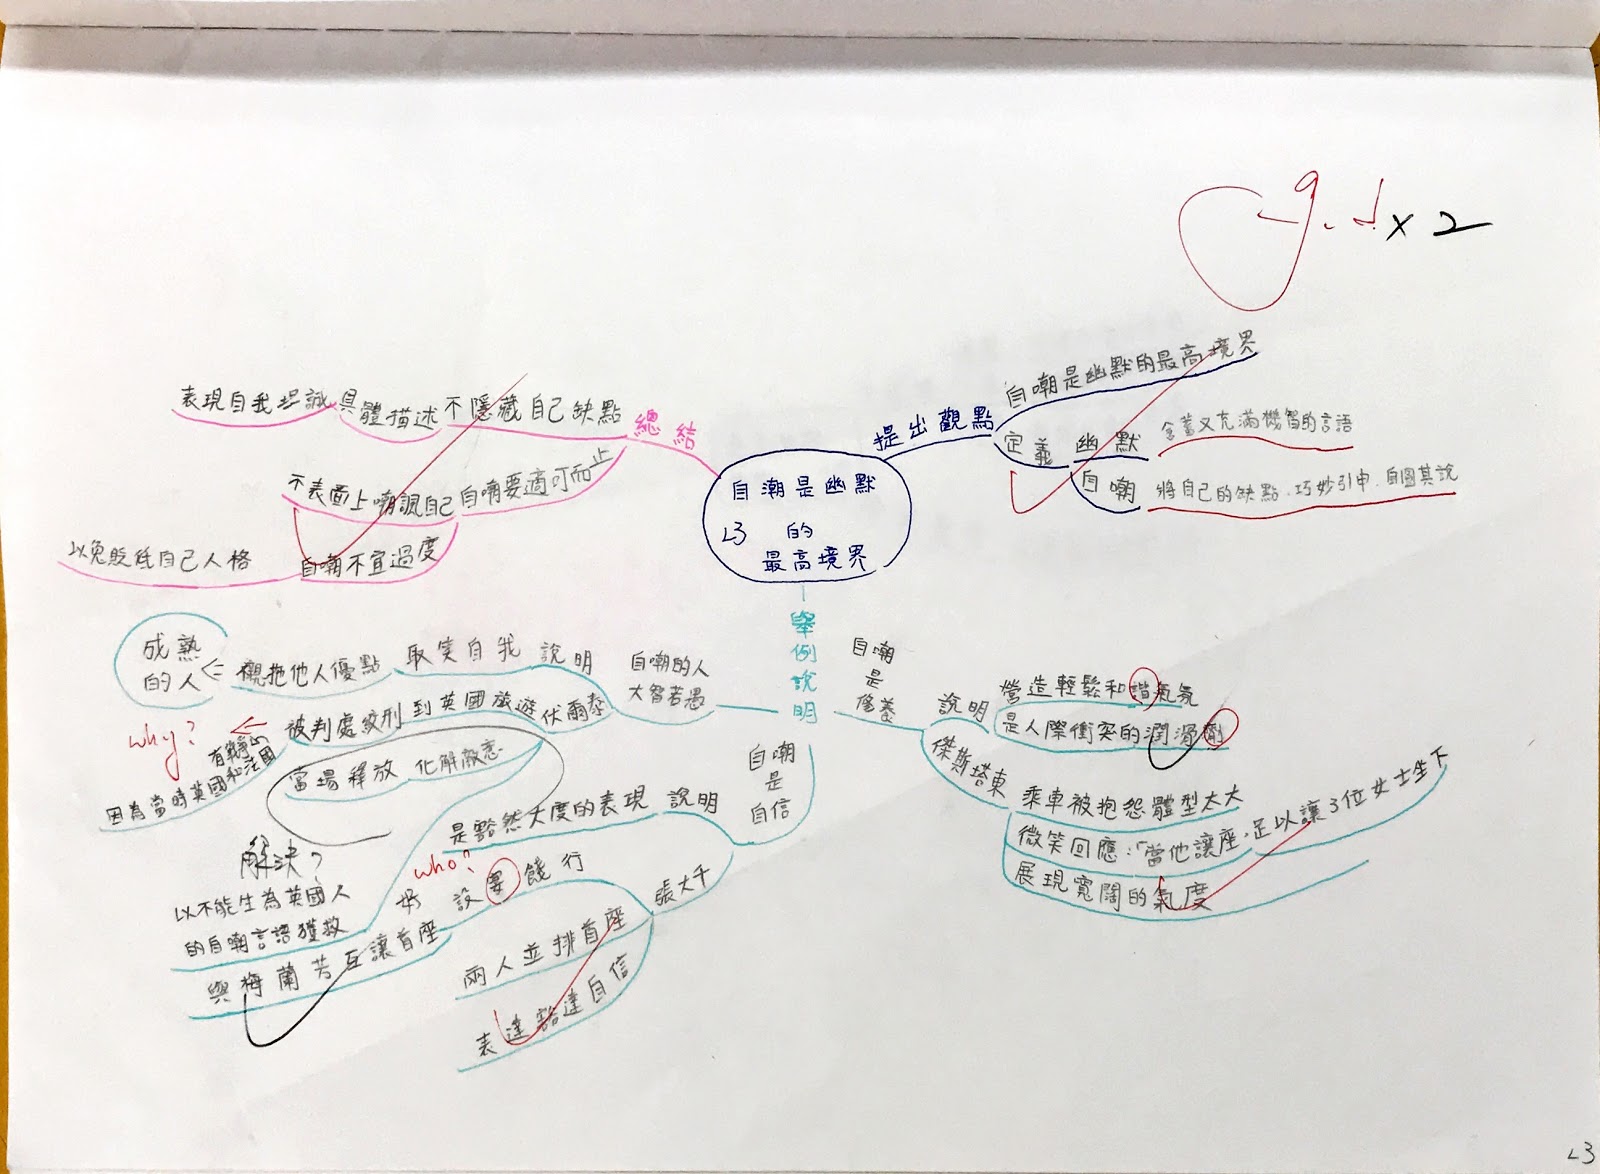 good x 2
自嘲是幽默
L3 的
最高境界
提出觀點
自嘲是幽默的最高境界
定義
幽默
含蓄又充滿機智的言語
自嘲
將自己的缺點,巧妙引申,自圓其說
舉例說明
自嘲
是
修養
說明
營造輕鬆和諧氣氛
是人際衝突的潤滑劑
傑斯塔東
乘車被抱怨體型太大
微笑回應:「當他讓座,足以讓3位女士坐下
展現寬闊的氣度
自嘲
是
自信
說明
是豁然大度的表現
張大千
好 設宴餞行
who?
與梅蘭芳互讓首座
兩人並排首座
表達豁達自信
自嘲的人
大智若愚
說明
取笑自我
襯托他人優點
成熟
的人
伏爾泰
到英國旅遊
被判處絞刑
why?
因為當時英國和法國
有戰爭
以不能生為英國人
的自嘲言語獲救
解決?
當場釋放 化解敵意
總結
不隱藏自己缺點
具體描述
表現自我坦誠
自嘲要適可而止
不表面上嘲諷自己
自嘲不宜過度
以免貶低自己人格
L3